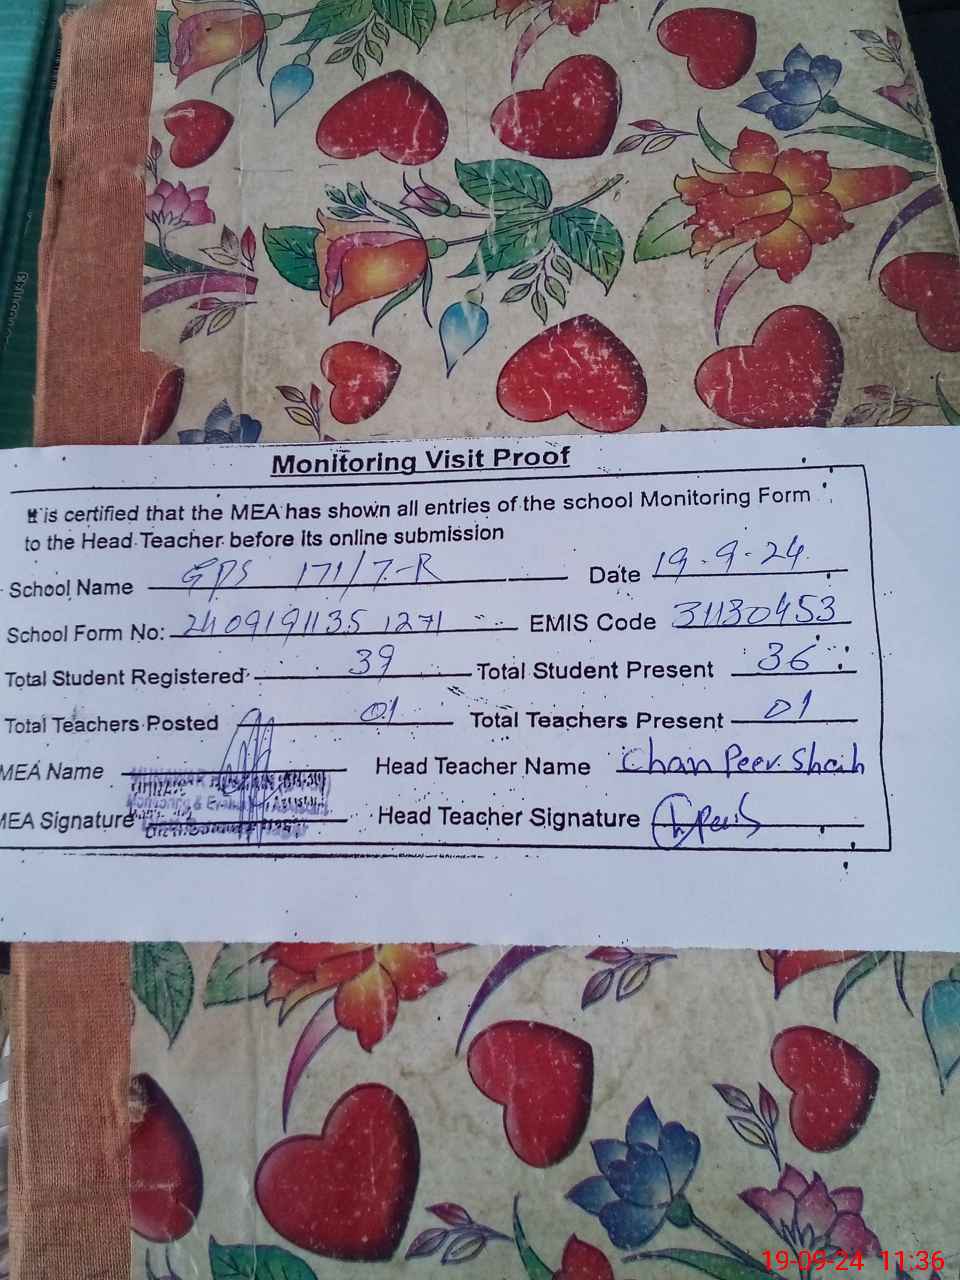 Monitoring Visit Proof
It is certified that the MEA has shown all entries of the school Monitoring Form
to the Head Teacher before its online submission
School Name GPS 171/7-R Date 19-9-24
School Form No: 24091911351271 EMIS Code 31130453
Total Student Registered 39 Total Student Present 36
Total Teachers Posted 01 Total Teachers Present 01
MEA Name Head Teacher Name Chan Peer Shah
MEA Signature Head Teacher Signature
19-09-24 11:36